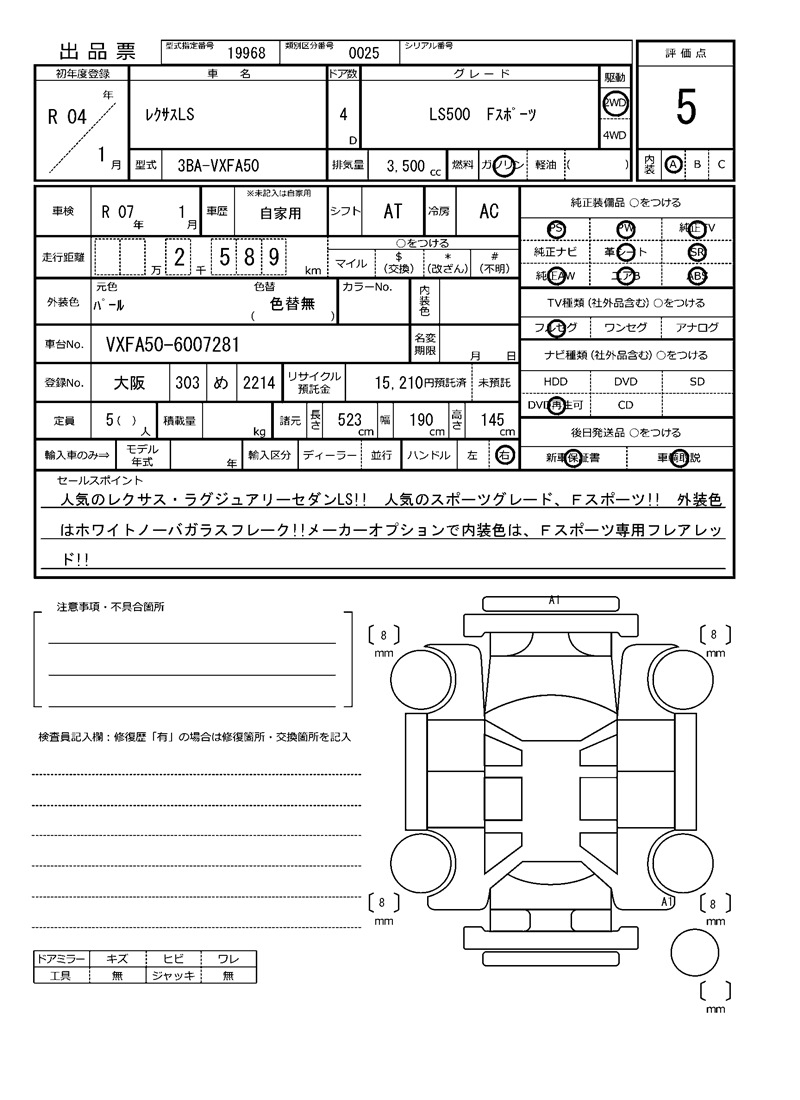 出品票 型式指定番号 19968 類別区分番号 0025 シリアル番号
評価点
5
内装 A B C
初年度登録 車名 ドア数 グレード 駆動
R 04 年 1 月 レクサスLS 4 D LS500 Fスポーツ 2WD
4WD
型式 3BA-VXFA50 排気量 3,500 cc 燃料 ガソリン 軽油 ( )
車検 R 07 年 1 月 車歴 ※未記入は自家用 自家用 シフト AT 冷房 AC
走行距離 万 2 千 5 8 9 km ○をつける
マイル $ (交換) * (改ざん) # (不明)
外装色 元色 パール 色替 ( 色替無 ) カラーNo. 内装色
車台No. VXFA50-6007281 名変期限 月 日
登録No. 大阪 303 め 2214 リサイクル預託金 15,210円預託済 未預託
定員 5 ( ) 人 積載量 kg 諸元 長さ 523 cm 幅 190 cm 高さ 145 cm
輸入車のみ⇒ モデル年式 年 輸入区分 ディーラー 並行 ハンドル 左 右
純正装備品 ○をつける
PS PW 純正TV
純正ナビ 革シート SR
純正AW エアB ABS
TV種類(社外品含む)○をつける
フルセグ ワンセグ アナログ
ナビ種類(社外品含む)○をつける
HDD DVD SD
DVD再生可 CD
後日発送品 ○をつける
新車保証書 車輌取説
セールスポイント
人気のレクサス・ラグジュアリーセダンLS!! 人気のスポーツグレード、Fスポーツ!! 外装色
はホワイトノーバガラスフレーク!!メーカーオプションで内装色は、Fスポーツ専用フレアレッ
ド!!
注意事項・不具合箇所
検査員記入欄:修復歴「有」の場合は修復箇所・交換箇所を記入
ドアミラー キズ ヒビ ワレ
工具 無 ジャッキ 無
A1
8 mm
8 mm
8 mm
A1
8 mm
mm